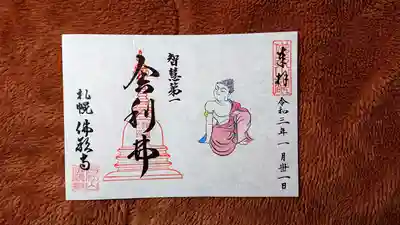 奉拝
令和三年一月卅一日
智慧第一
舎利弗
札幌 佛願寺